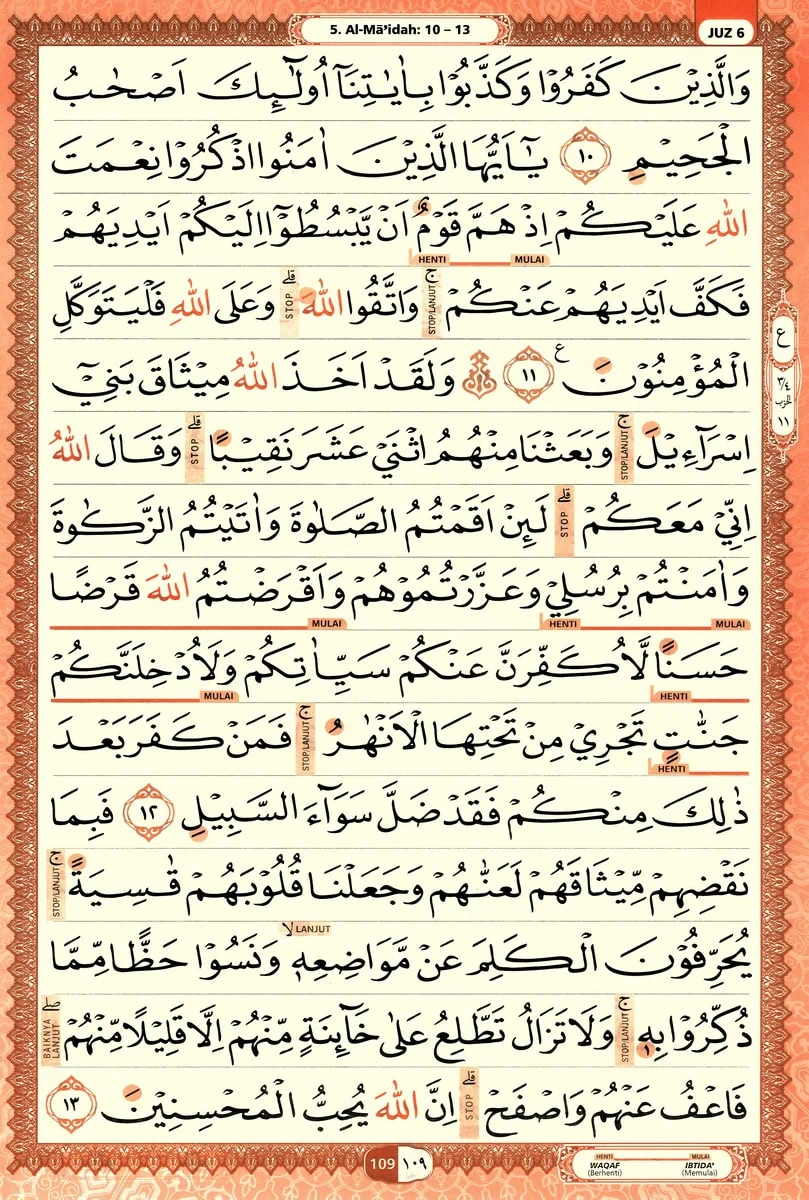 5. Al-Mā’idah: 10 – 13
JUZ 6
وَالَّذِيْنَ كَفَرُوْا وَكَذَّبُوْا بِاٰيٰتِنَآ اُولٰۤىِٕكَ اَصْحٰبُ
الْجَحِيْمِ ١٠ يٰٓاَيُّهَا الَّذِيْنَ اٰمَنُوا اذْكُرُوْا نِعْمَتَ
اللّٰهِ عَلَيْكُمْ اِذْ هَمَّ قَوْمٌ اَنْ يَّبْسُطُوْٓا اِلَيْكُمْ اَيْدِيَهُمْ
HENTI MULAI
فَكَفَّ اَيْدِيَهُمْ عَنْكُمْۚ STOP/LANJUT وَاتَّقُوا اللّٰهَ ۗ STOP وَعَلَى اللّٰهِ فَلْيَتَوَكَّلِ
الْمُؤْمِنُوْنَ ࣖ ١١ ۞ وَلَقَدْ اَخَذَ اللّٰهُ مِيْثَاقَ بَنِيْٓ
ع
٣/٤
الحزب
١١
اِسْرَاۤءِيْلَۚ STOP/LANJUT وَبَعَثْنَا مِنْهُمُ اثْنَيْ عَشَرَ نَقِيْبًاۗ STOP وَقَالَ اللّٰهُ
اِنِّيْ مَعَكُمْ ۗ STOP لَىِٕنْ اَقَمْتُمُ الصَّلٰوةَ وَاٰتَيْتُمُ الزَّكٰوةَ
وَاٰمَنْتُمْ بِرُسُلِيْ وَعَزَّرْتُمُوْهُمْ وَاَقْرَضْتُمُ اللّٰهَ قَرْضًا
MULAI HENTI MULAI
حَسَنًا لَّاُكَفِّرَنَّ عَنْكُمْ سَيِّاٰتِكُمْ وَلَاُدْخِلَنَّكُمْ
HENTI MULAI
جَنّٰتٍ تَجْرِيْ مِنْ تَحْتِهَا الْاَنْهٰرُۚ STOP/LANJUT فَمَنْ كَفَرَ بَعْدَ
HENTI
ذٰلِكَ مِنْكُمْ فَقَدْ ضَلَّ سَوَاۤءَ السَّبِيْلِ ١٢ فَبِمَا
نَقْضِهِمْ مِّيْثَاقَهُمْ لَعَنّٰهُمْ وَجَعَلْنَا قُلُوْبَهُمْ قٰسِيَةً ۚ STOP/LANJUT
يُحَرِّفُوْنَ الْكَلِمَ عَنْ مَّوَاضِعِهٖۙ LANJUT وَنَسُوْا حَظًّا مِّمَّا
ذُكِّرُوْا بِهٖۚ STOP/LANJUT وَلَا تَزَالُ تَطَّلِعُ عَلٰى خَاۤىِٕنَةٍ مِّنْهُمْ اِلَّا قَلِيْلًا مِّنْهُمْ ۖ BAIKNYA LANJUT
فَاعْفُ عَنْهُمْ وَاصْفَحْ ۗ STOP اِنَّ اللّٰهَ يُحِبُّ الْمُحْسِنِيْنَ ١٣
109 ١٠٩
HENTI MULAI
WAQAF IBTIDA'
(Berhenti) (Memulai)